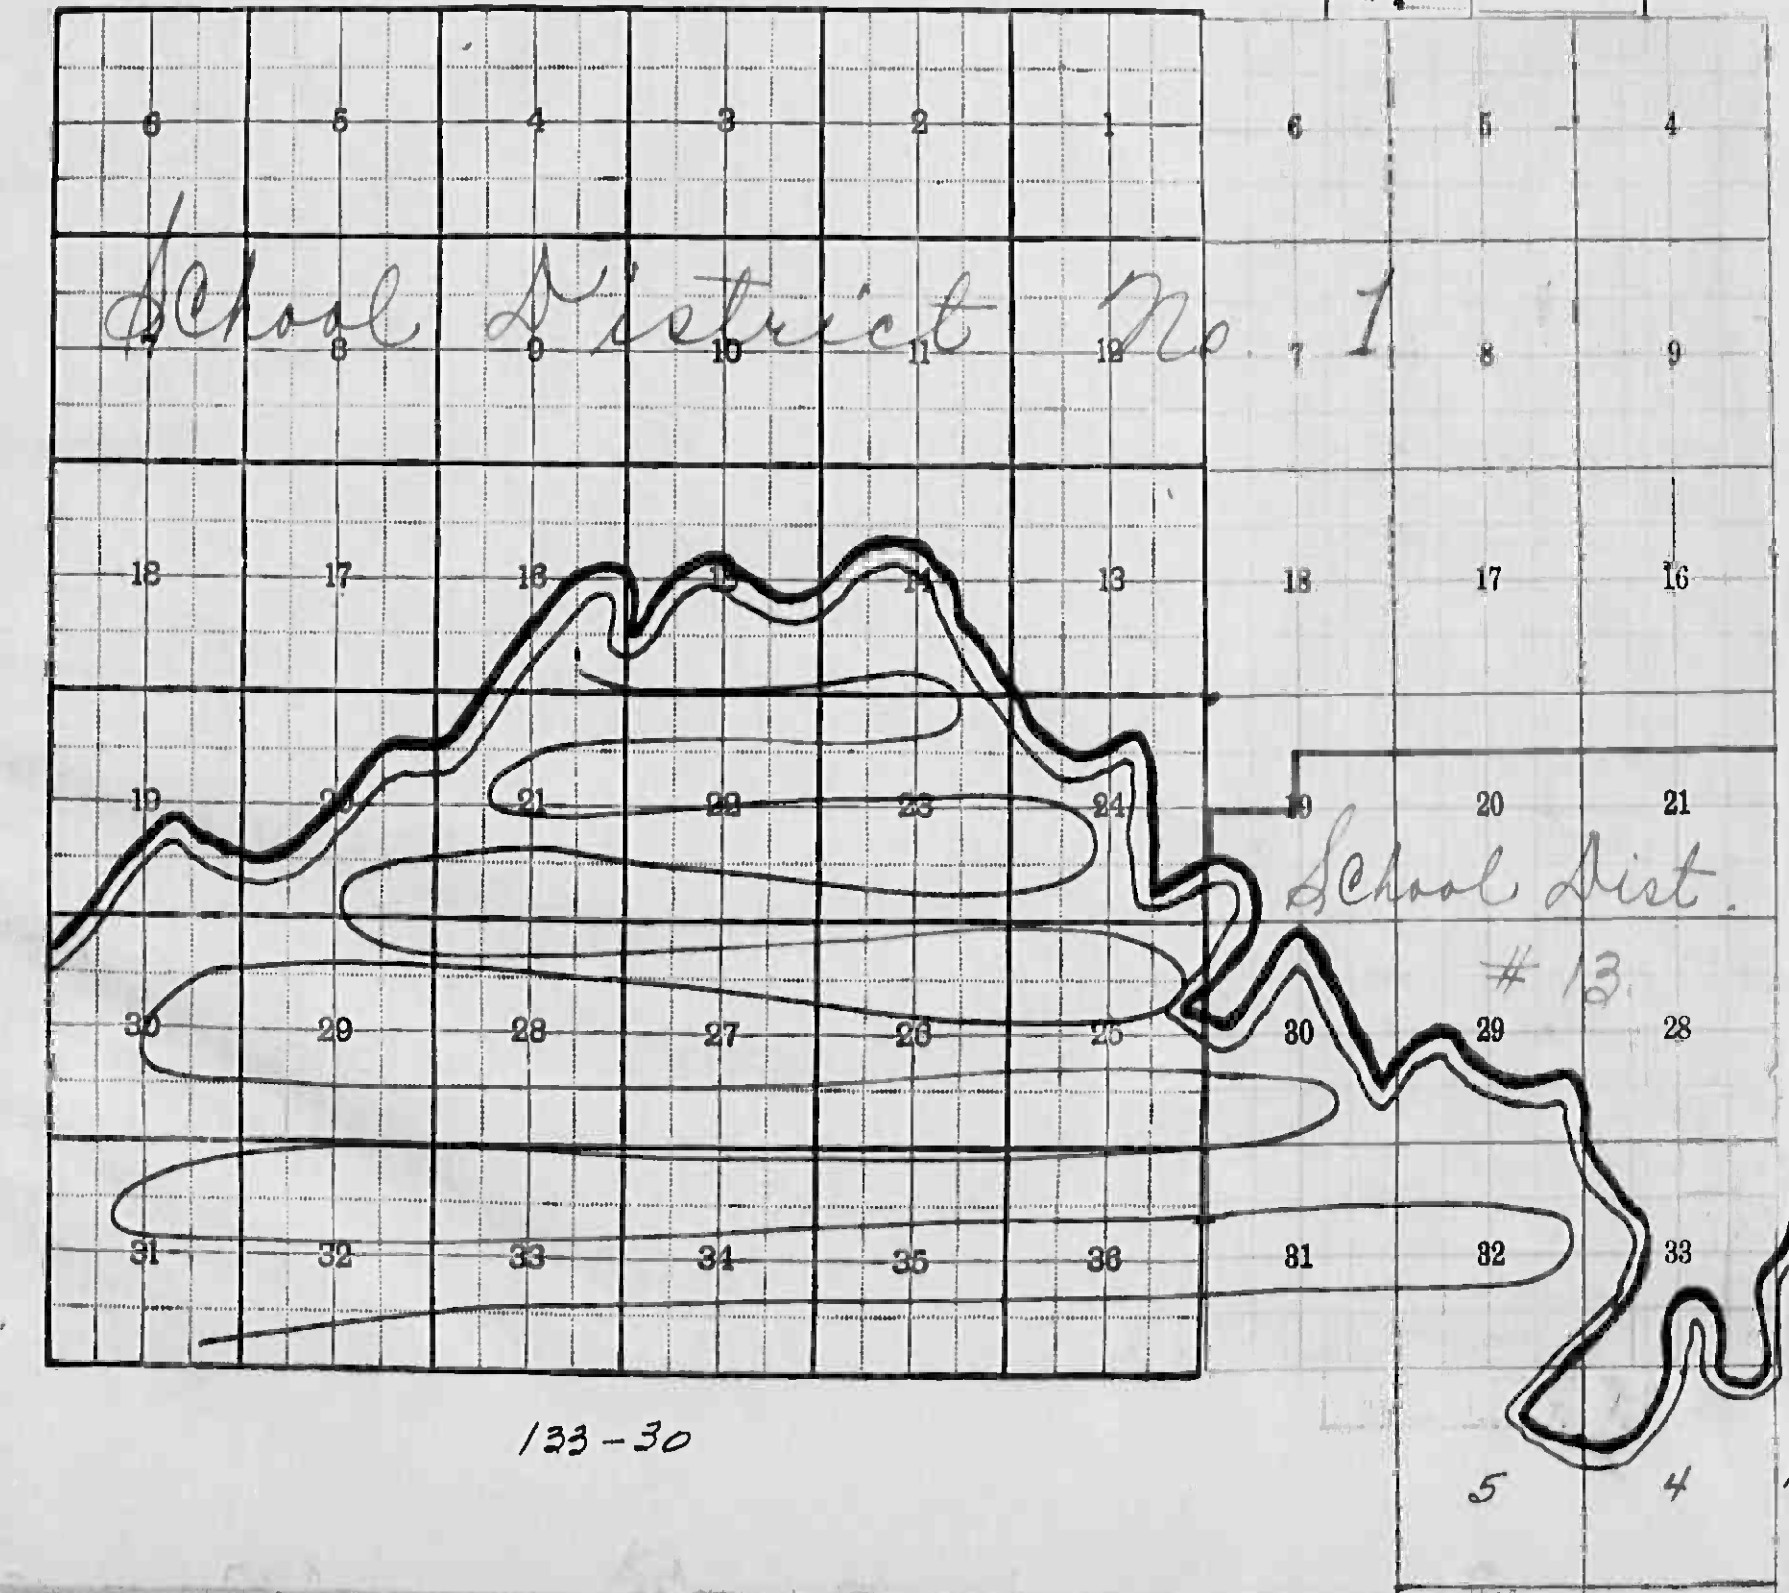 6 5 4 3 2 1 6 5 4
School District No. 1
7 8 9 10 11 12 7 8 9
18 17 16 15 14 13 18 17 16
19 20 21 22 23 24 19 20 21
School Dist.
# 13.
30 29 28 27 26 25 30 29 28
31 32 33 34 35 36 31 32 33
133-30
5 4